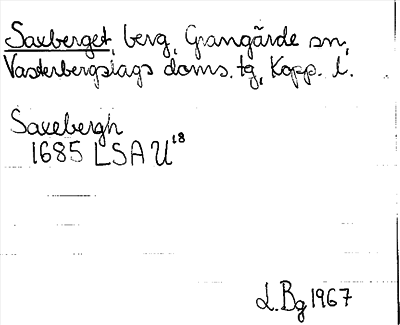 Saxberget, berg, Grangärde sn,
Västerbergslags doms. tg, Kopp. l.
Saxebergh
1685 LSA U18
L.Bg 1967